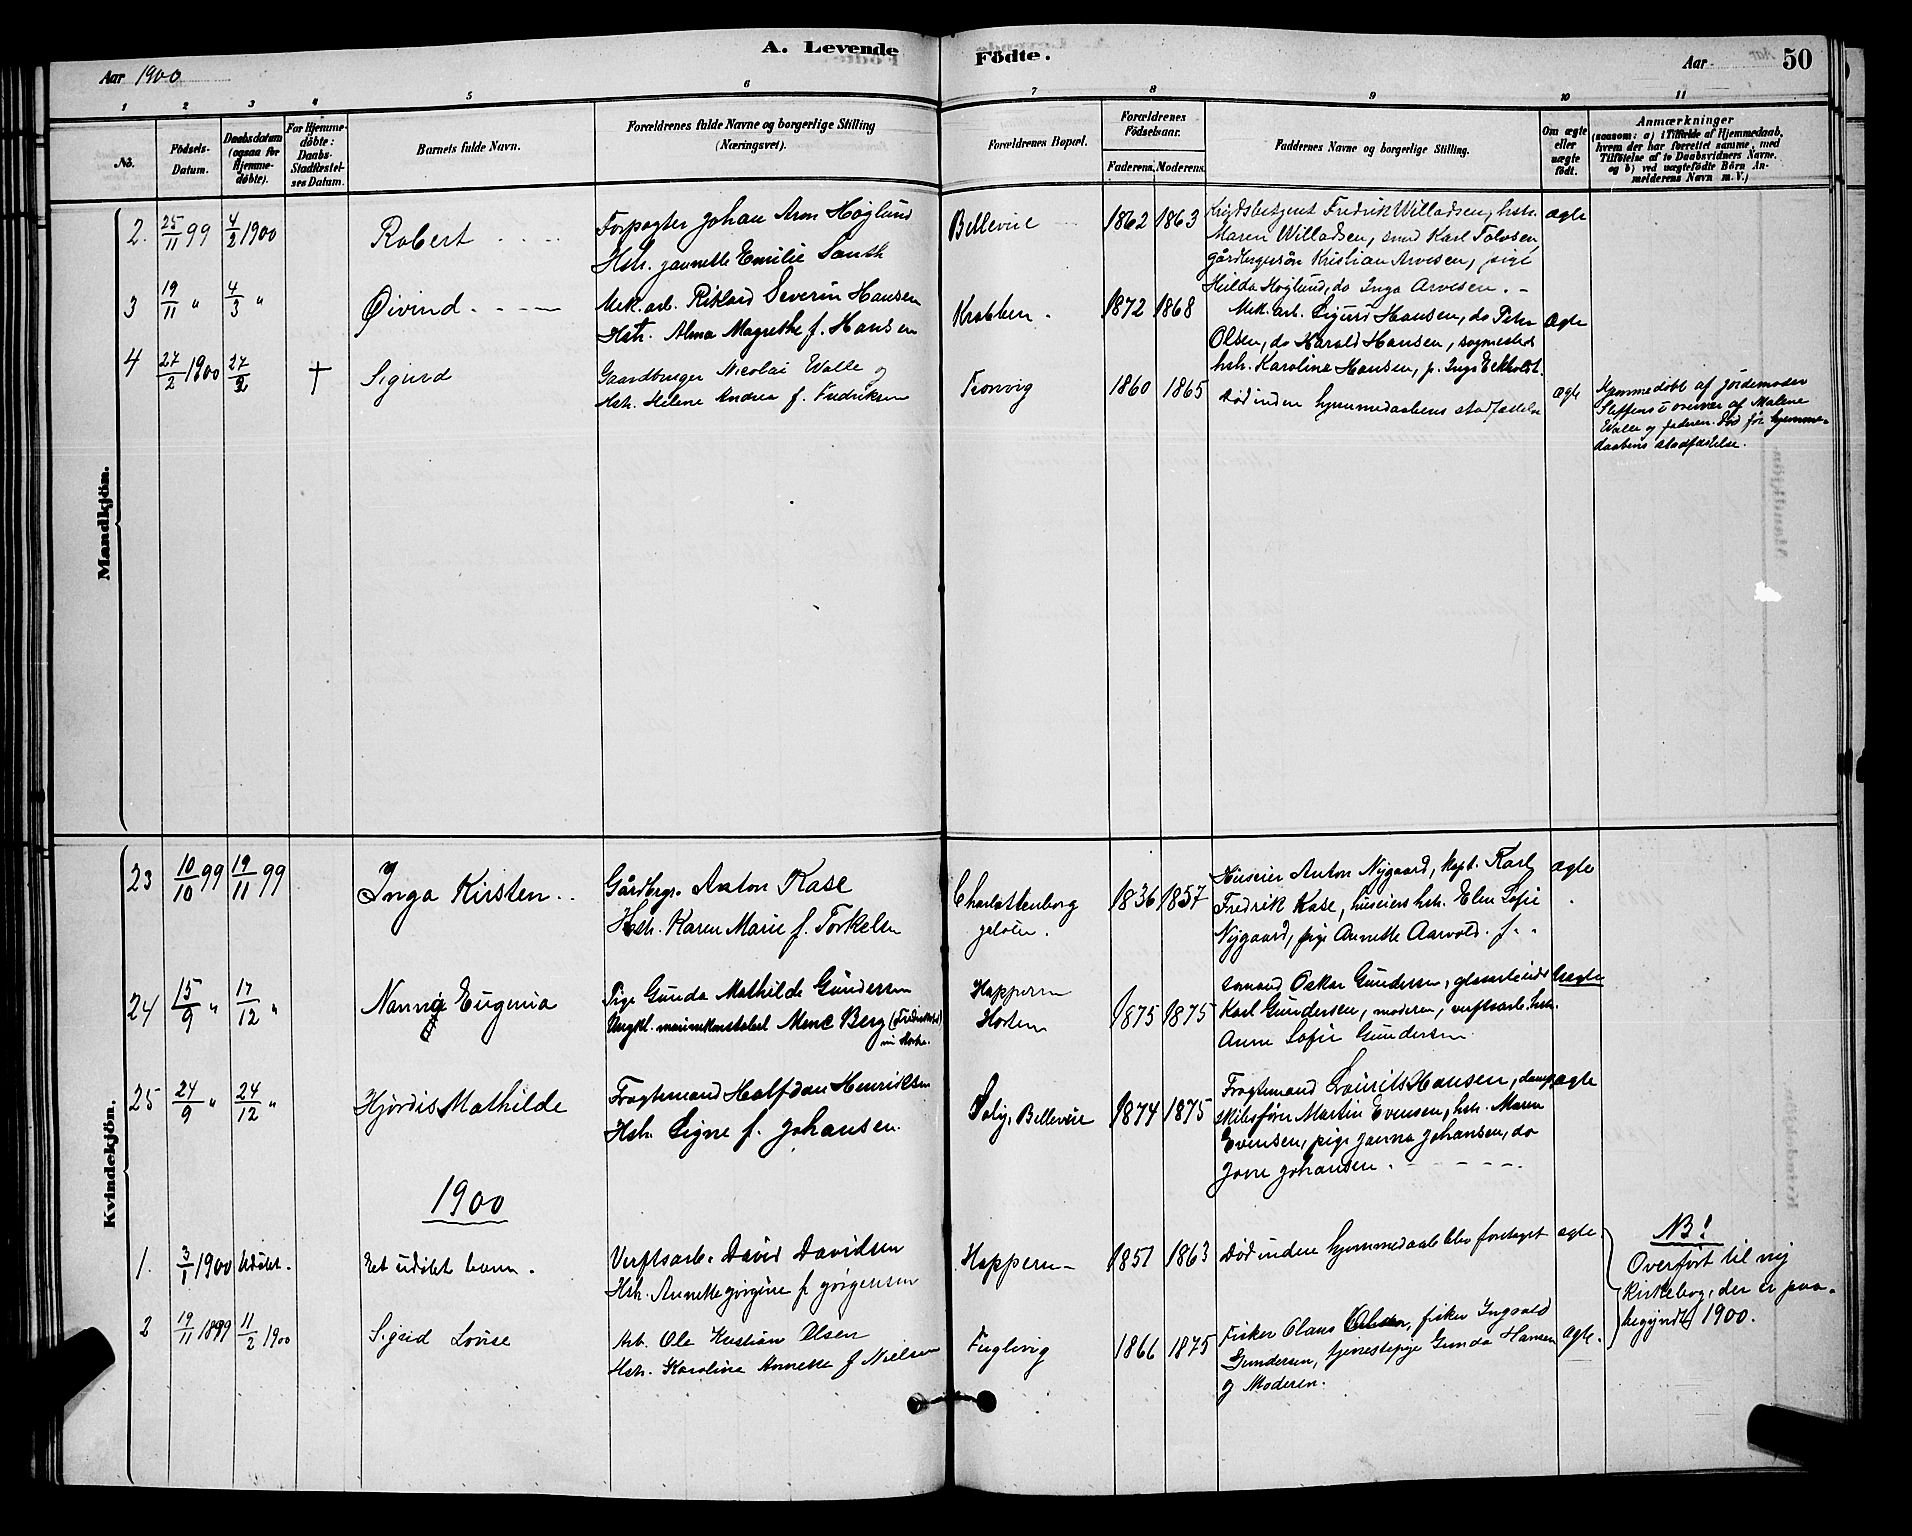 A. Levende Födte.
Aar 1900
Aar
50
1 2 3 4 5 6 7 8 9 10 11
No.
Födsels-
Datum.
Daabsdatum
(ogsaa for
Hjemme-
døbte).
For Hjemme-
döbte:
Daabs-
Stadfæstel-
ses Datum.
Barnets fulde Navn.
Forældrenes fulde Navne og borgerlige Stilling
(Næringsvei).
Forældrenes Bopæl.
Forældrenes
Födselsaar.
Faderens. Moderens.
Faddernes Navne og borgerlige Stilling.
Om ægte
eller
uægte
födt.
Anmærkninger
(saasom: a) i Tilfælde af Hjemmedaab,
hvem der har forrettet samme, med
Tilföielse af to Daabsvidners Navne,
og b) ved uægtefödte Börn An-
melderens Navn m. V.)
Mandkjön.
2. 25/11 99 4/2 1900 Robert
Forpagter Johan Aron Høglund
Hstr. Jannette Emilie Santh
Bellevue 1862 1863
Fredrik Willadsen, hstr.
Maren Willadsen, smed Karl Tolvsen
gårdbrugersøn Kristian Arvesen, pige
Hilda Høglund, do Inga Arvesen.
ægte
3 19/11 " 4/3 " Øivind
Mek. arb. Rikard Severin Hansen
Hstr. Alma Magrethe f. Hansen
Krabben 1872 1868
Mek. arb. Sigurd Hansen, do Peter
Olsen, do Harald Hansen, sognested
hstr. Karoline Hansen, p. Inga Eckholdt.
ægte
4 27/2 1900 27/2 † Sigurd
Gaardbruger Nicolai Walle og
Hstr. Helene Andrea f. Fredriksen
Tronvig 1860 1865
Død inden hjemmedaabens stadfæstelse
ægte
Hjemmedøbt af jordemoder
Steffens i overvær af Malene
Walle og faderen. Død før hjemme-
daabens stadfæstelse.
Kvindekjön.
23 10/10 99 19/11 99 Inga Kirsten
Gårdbrgr. Anton Kase
Hstr. Karen Marie f. Torkelsen
Charlottenborg
Jeløen.
1836 1857
Huseier Anton Nygaard, kapt. Karl
Fredrik Kase, huseiers hstr. Elen Sofie
Nygaard, pige Annette Aarvold.
ægte
24 15/9 " 17/12 " Nanny Eugenia
Pige Gunda Mathilde Gundersen
Ungkl. marinekonstabel Menc Berg
Horten
1875 1875
Sømand Oskar Gundersen, glasarbeide
Karl Gundersen, moderen, verftsarb. hstr.
Anne Sofie Gundersen
Uægte
25 24/9 " 24/12 " Hjørdis Mathilde
Fragtemand Halfdan Henriksen
Hstr. Signe f. Johansen.
Solg, Bellevue 1874 1875
Fragtemand Lourits Hansen, damp-
skibsfører Martin Evensen, hstr. Maren
Evensen, pige Janna Johansen, do
Jove Johansen.
ægte
1900
1. 3/1 1900 Udøbt. Et udøbt barn.
Verftsarb. David Davidsen
Hstr. Annette Jørgine f. Jørgensen
1851 1863
Død inden hjemmedaab blev foretaget
ægte.
2 19/11 1899 11/2 1900 Sigrid Lovise
Arb. Ole Kristian Olsen
Hstr. Karoline Annette f. Nielsen
Fuglevig 1866 1875
Fisker Olaus Olsen, fisker Ingvald
Gundersen, tjenestepige Gunda Hansen
og Moderen.
ægte.
NB!
Overført til ny
kirkebog, der er paa-
begyndt 1900.